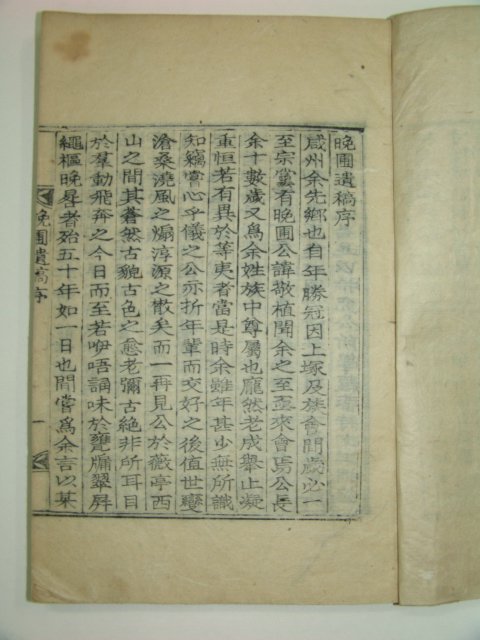 晩圃遺稿序
咸州余先鄕也自年勝冠因上塚及族會間歲必一
至宗黨有晩圃公諱敬植聞余之至亟來會焉公長
余十數歲又爲余姓族中尊屬也龐然老成擧止凝
重恒若有異於等夷者當是時余雖年甚少無所識
知竊嘗心乎儀之公亦折年輩而交好之後値世變
滄桑澆風之煽淳源之散矣而一再見公於薇亭西
山之間其蒼然古貌古色之愈老彌古絶非所耳目
於羣動飛奔之今日而至若咿唔誦味於甕牖翠屛
繩樞晩㝵者殆五十年如一日也間嘗爲余言以某
晩圃遺稿序
一